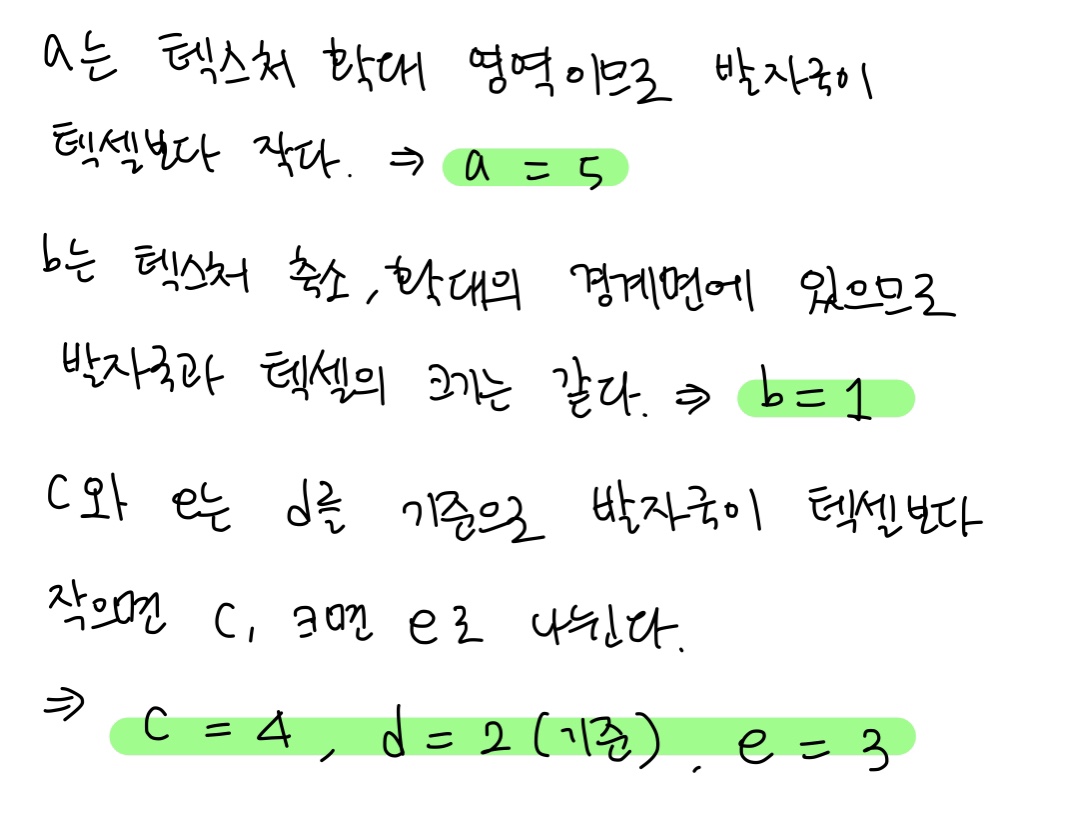 a는 텍스처 확대 영역이므로 발자국이
텍셀보다 작다. ⇒ a = 5
b는 텍스처 축소, 확대의 경계면에 있으므로
발자국과 텍셀의 크기는 같다. ⇒ b = 1
c와 e는 d를 기준으로 발자국이 텍셀보다
작으면 c, 크면 e로 나뉜다.
⇒ c = 4, d = 2 (기준), e = 3